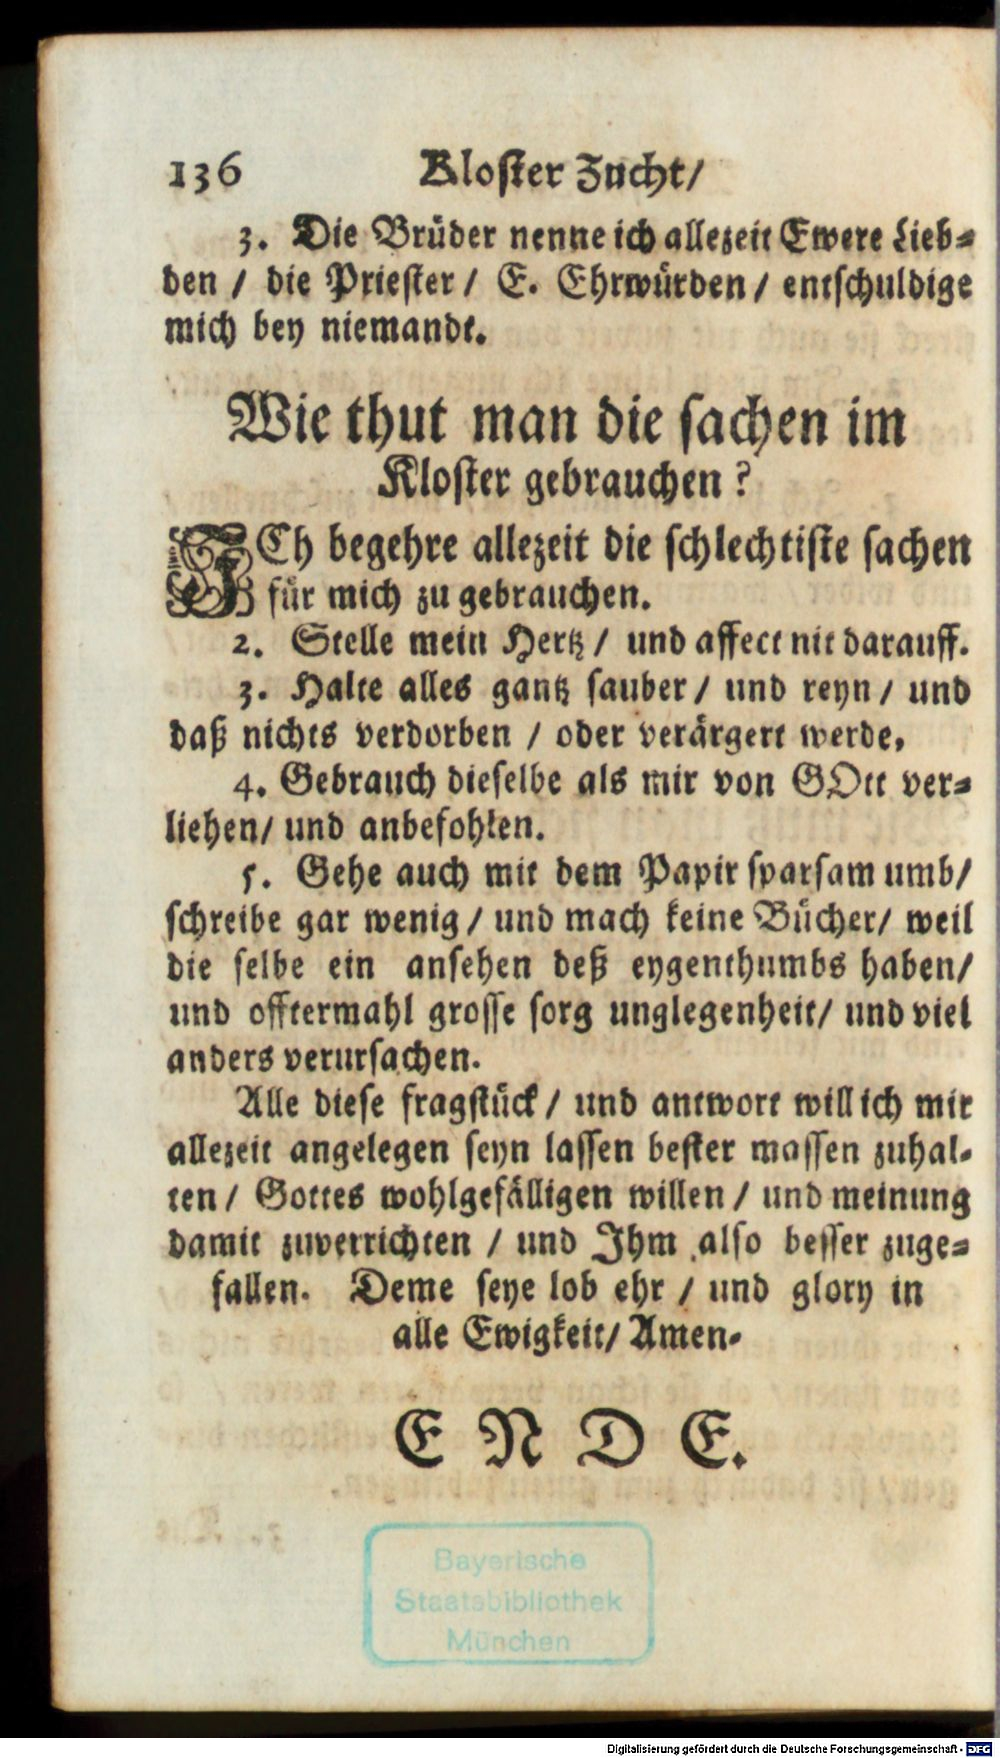 136 Kloster Zucht/
3. Die Brüder nenne ich allezeit Ewere Lieb-
den / die Priester / E. Ehrwürden / entschuldige
mich bey niemandt.
Wie thut man die sachen im
Kloster gebrauchen?
ICh begehre allezeit die schlechtiste sachen
für mich zu gebrauchen.
2. Stelle mein Hertz / und affect nit darauff.
3. Halte alles gantz sauber / und reyn / und
daß nichts verdorben / oder verärgert werde,
4. Gebrauch dieselbe als mir von GOtt ver-
liehen/ und anbefohlen.
5. Gehe auch mit dem Papir sparsam umb/
schreibe gar wenig / und mach keine Bücher/ weil
die selbe ein ansehen deß eygenthumbs haben/
und offtermahl grosse sorg unglegenheit/ und viel
anders verursachen.
Alle diese fragstück / und antwort will ich mir
allezeit angelegen seyn lassen bester massen zuhal-
ten / Gottes wohlgefälligen willen / und meinung
damit zuverrichten / und Ihm also besser zuge-
fallen. Deme seye lob ehr / und glory in
alle Ewigkeit/ Amen.
E N D E.
Bayerische
Staatsbibliothek
München
Digitalisierung gefördert durch die Deutsche Forschungsgemeinschaft - DFG